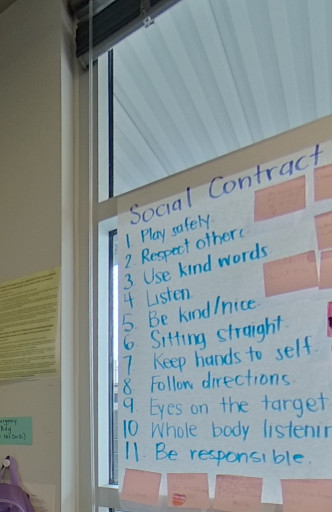 Social Contract
1 Play safely.
2 Respect others
3 Use kind words
4 Listen
5. Be kind/nice
6 Sitting straight
7 Keep hands to self.
8 Follow directions.
9. Eyes on the target
10 Whole body listenin
11. Be responsible.